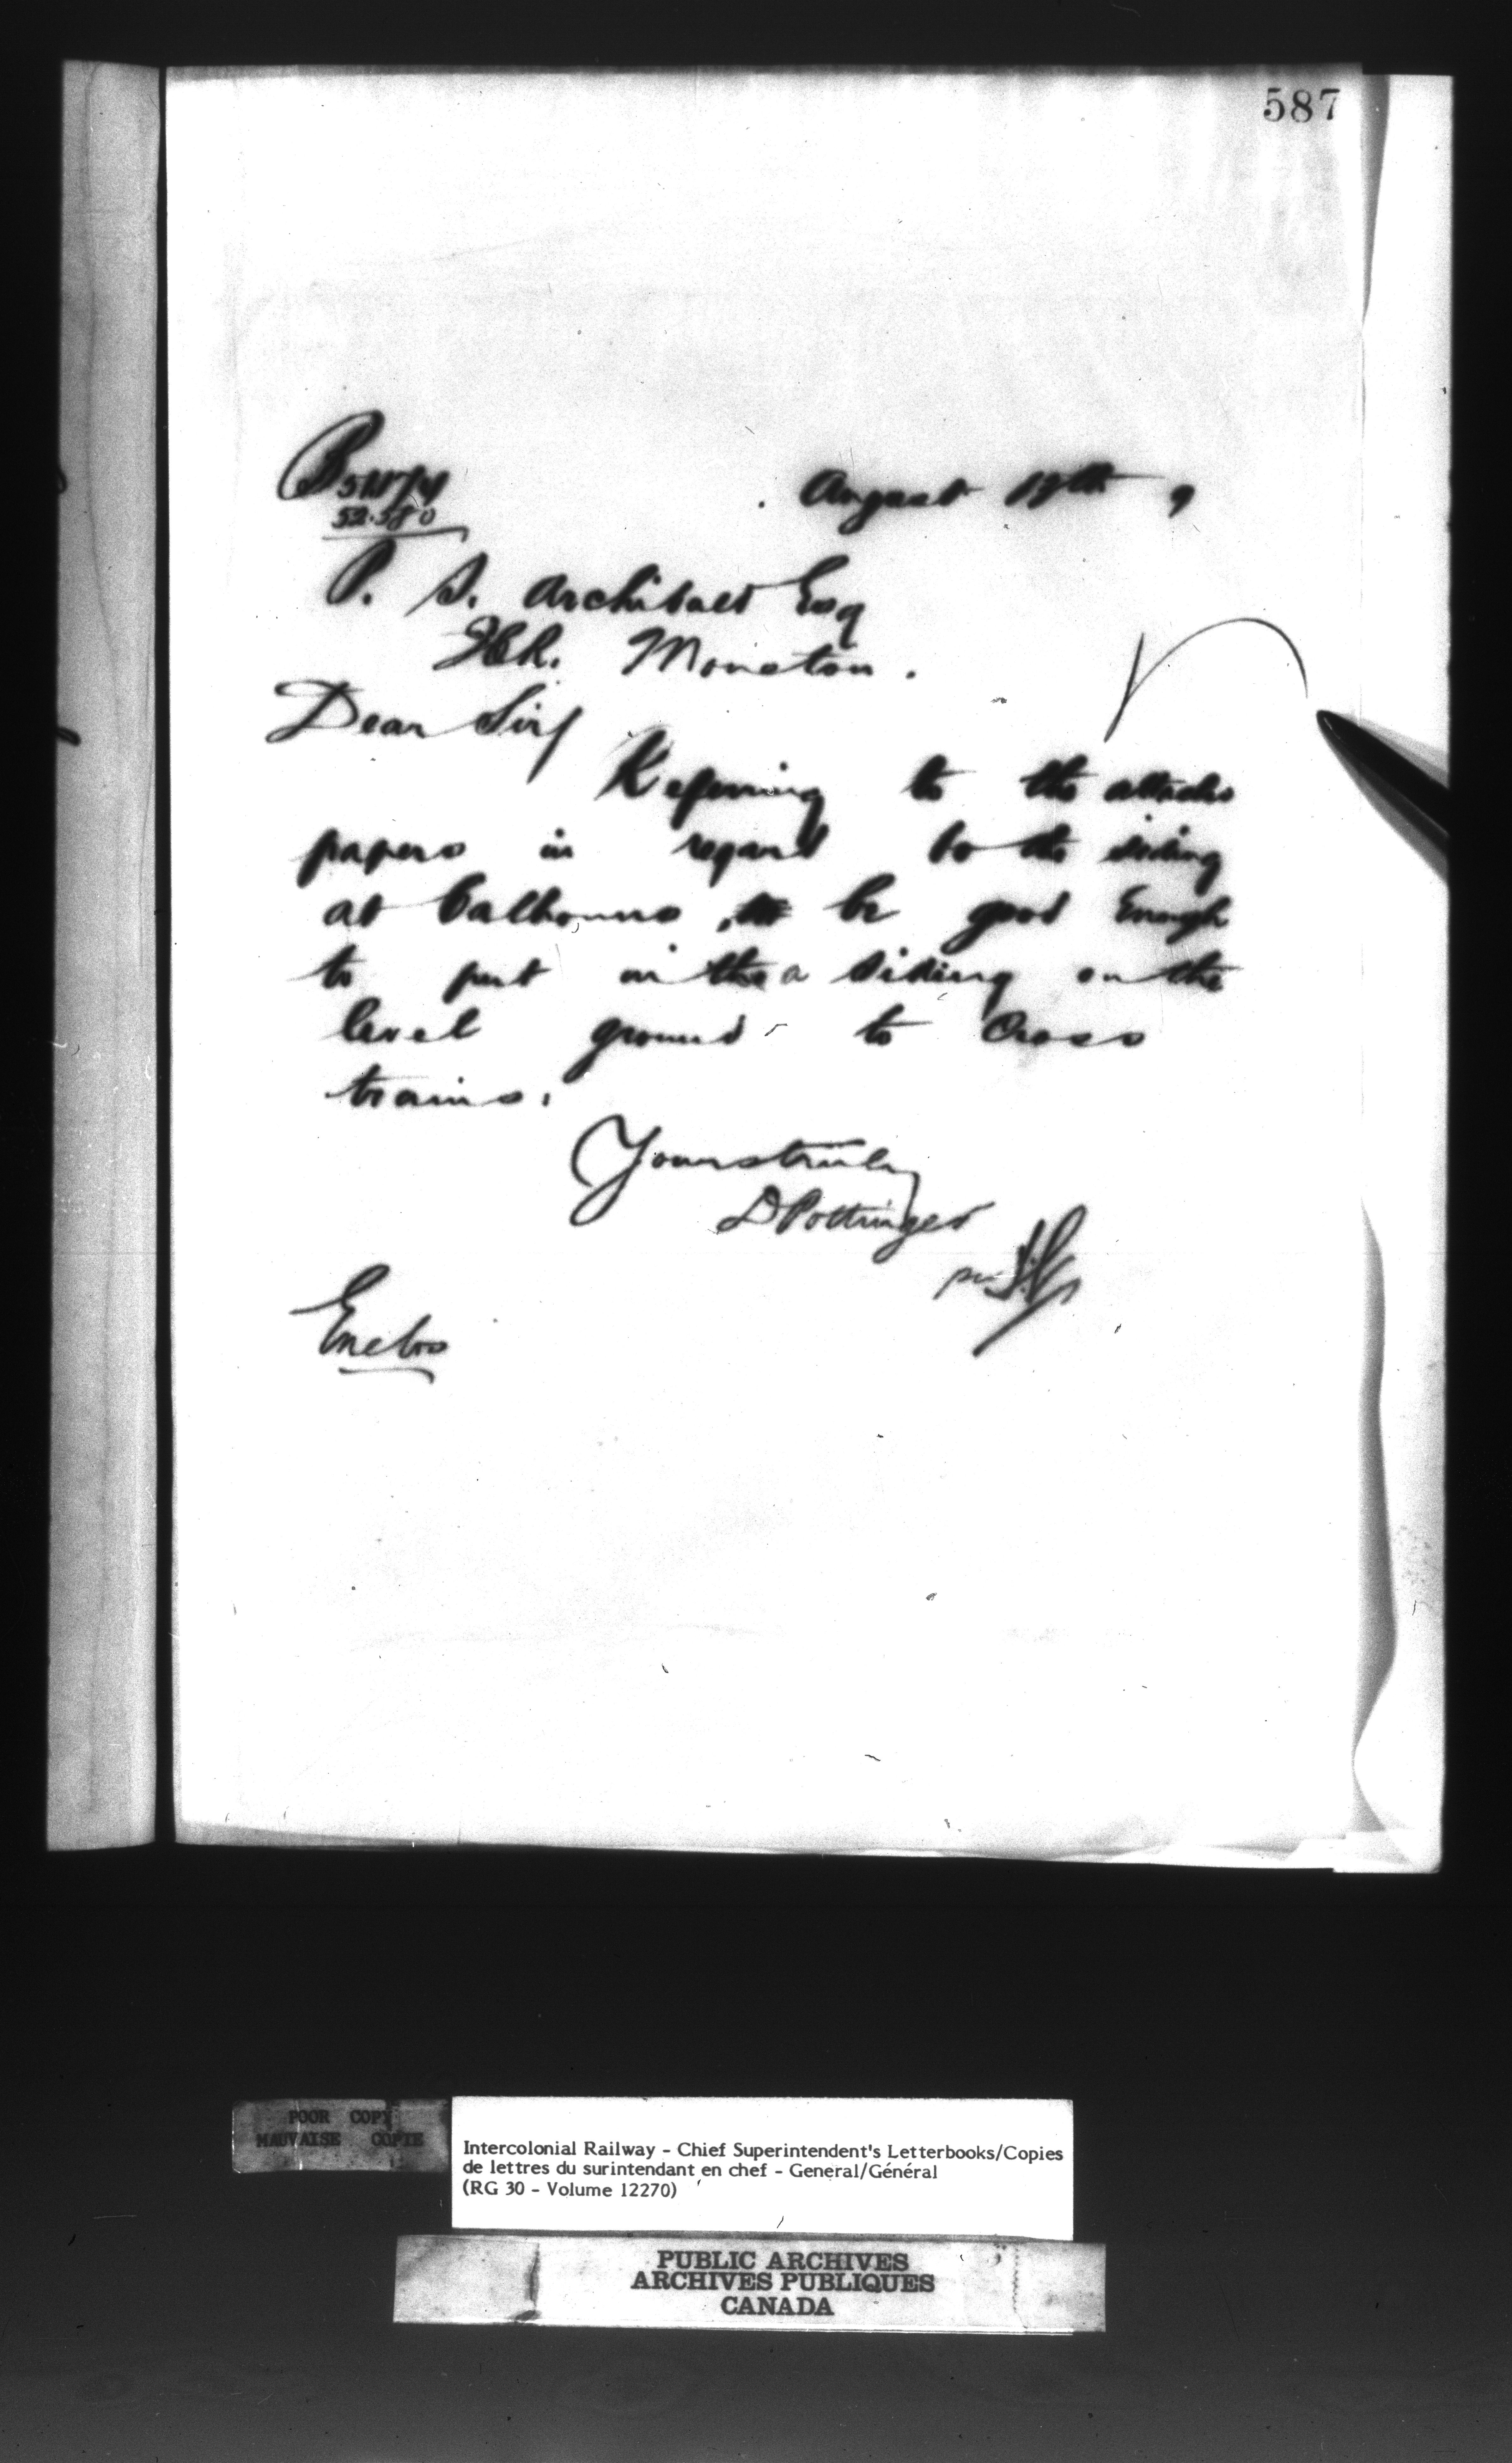 587
August 12th 9
52.580
P. S. Archibald Esq
ICR. Moncton.
Dear Sir/
Referring to the attachd
papers in regard to the siding
at Calhouns, be good Enough
to put in a siding on the
level ground to Cross
trains.
Yours truly
D Pottinger
per
Enclos
POOR COPY
MAUVAISE COPIE
Intercolonial Railway - Chief Superintendent's Letterbooks/Copies
de lettres du surintendant en chef - General/Général
(RG 30 - Volume 12270)
PUBLIC ARCHIVES
ARCHIVES PUBLIQUES
CANADA